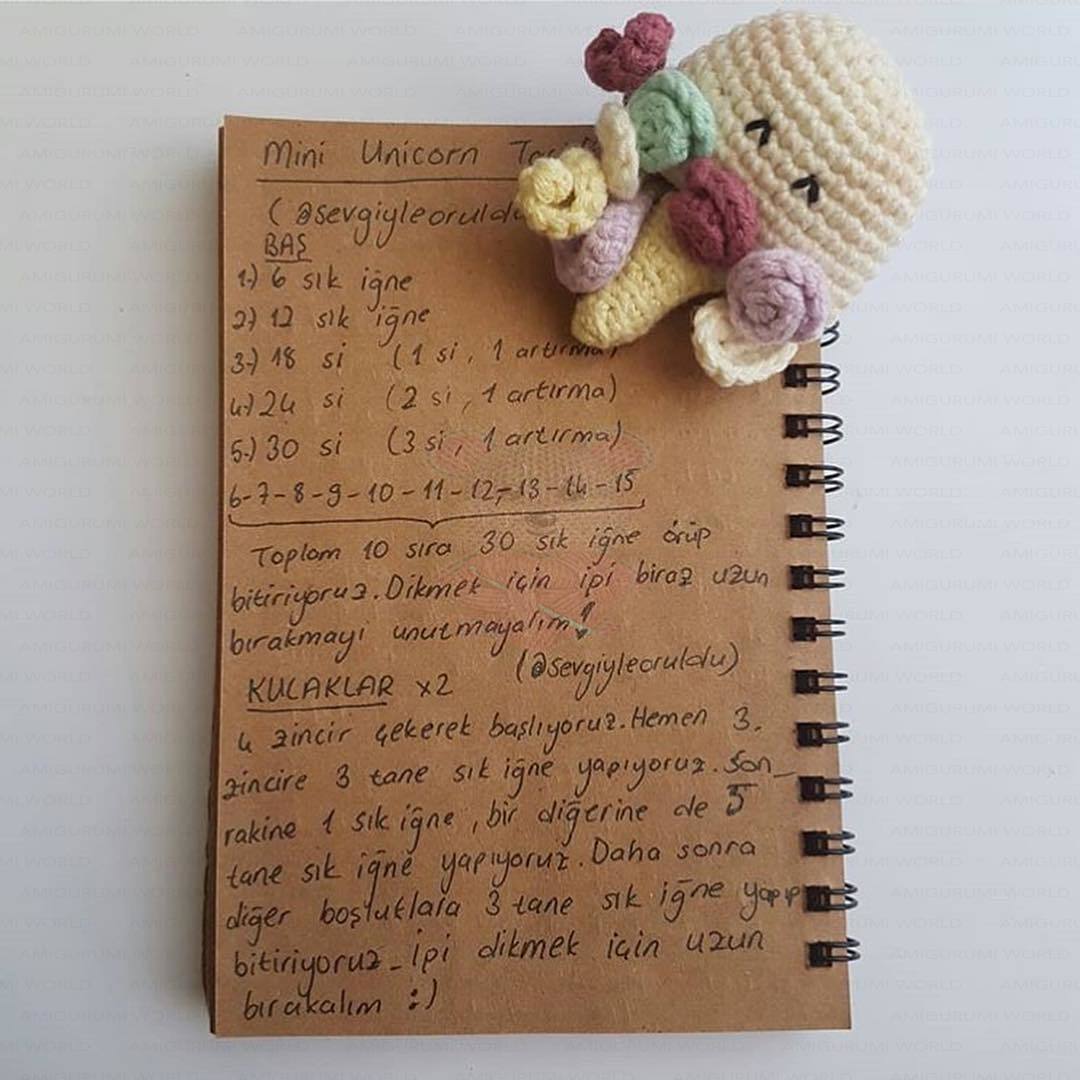 Mini Unicorn
(@sevgiyleoruldu
BAŞ
1-) 6 sık iğne
2-) 12 sık iğne
3-) 18 si (1 si, 1 artırma)
4-) 24 si (2 si, 1 artırma)
5-) 30 si (3 si, 1 artırma)
6-7-8-9-10-11-12-13-14-15
Toplam 10 sıra 30 sık iğne örüp
bitiriyoruz. Dikmek için ipi biraz uzun
bırakmayı unutmayalım!
(@sevgiyleoruldu)
KULAKLAR x2
4 zincir çekerek başlıyoruz. Hemen 3.
zincire 3 tane sık iğne yapıyoruz. Son_
rakine 1 sık iğne, bir diğerine de 5
tane sık iğne yapıyoruz. Daha sonra
diğer boşluklara 3 tane sık iğne yapıp
bitiriyoruz_ İpi dikmek için uzun
bırakalım :)
AMIGURUMI WORLD